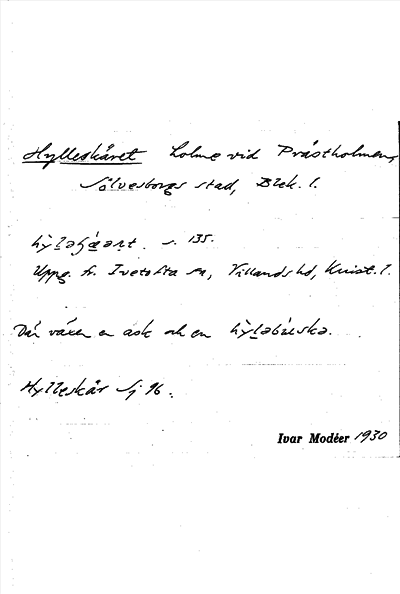 Hylleskäret holme vid Prästholmen,
Sölvesborgs stad, Blek. l.
s. 135.
Uppg. fr. Ivetofta sn, Villands hd, Krist. l.
Där växer en ask och en
Hylleskär Sj 96.
Ivar Modéer 1930